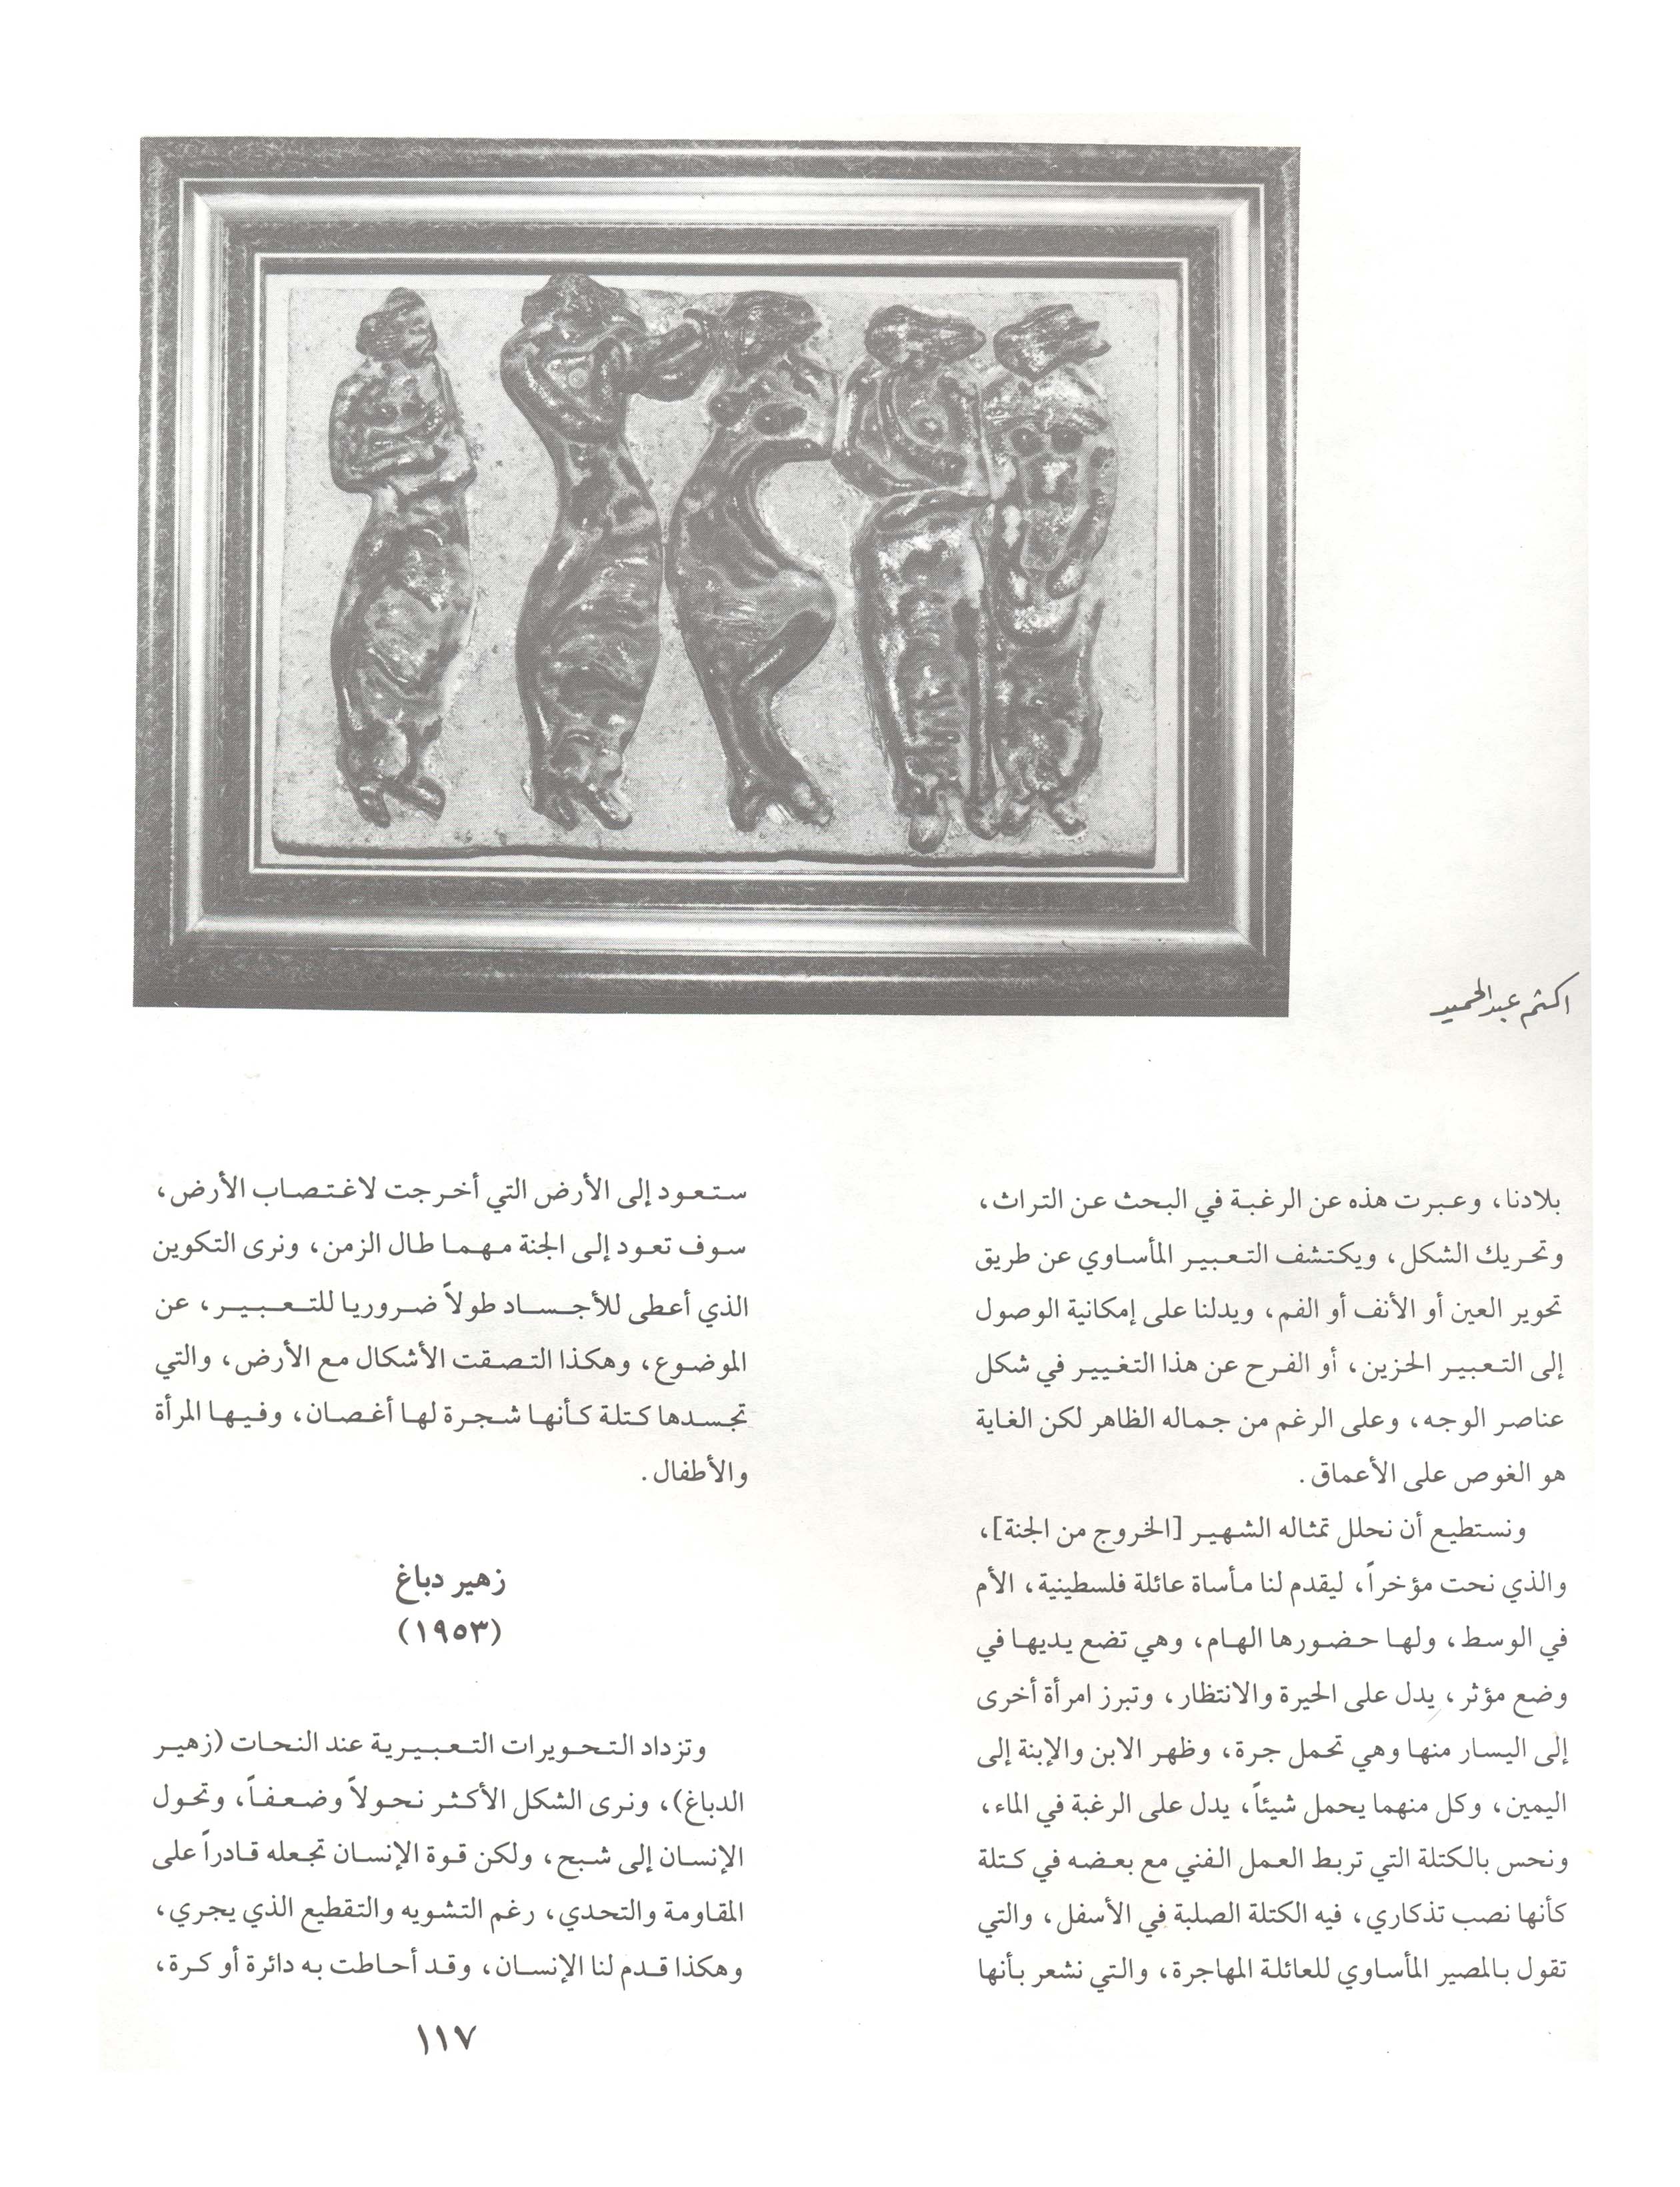 اكثم عبدالحميد
بلادنا، وعبرت هذه عن الرغبة في البحث عن التراث،
وتحريك الشكل، ويكتشف التعبير المأساوي عن طريق
تحوير العين أو الأنف أو الفم، ويدلنا على إمكانية الوصول
إلى التعبير الحزين، أو الفرح عن هذا التغيير في شكل
عناصر الوجه، وعلى الرغم من جماله الظاهر لكن الغاية
هو الغوص على الأعماق.
ونستطيع أن نحلل تمثاله الشهير [الخروج من الجنة]،
والذي نحت مؤخراً، ليقدم لنا مأساة عائلة فلسطينية، الأم
في الوسط، ولها حضورها الهام، وهي تضع يديها في
وضع مؤثر، يدل على الحيرة والانتظار، وتبرز امرأة أخرى
إلى اليسار منها وهي تحمل جرة، وظهر الابن والإبنة إلى
اليمين، وكل منهما يحمل شيئاً، يدل على الرغبة في الماء،
ونحس بالكتلة التي تربط العمل الفني مع بعضه في كتلة
كأنها نصب تذكاري، فيه الكتلة الصلبة في الأسفل، والتي
تقول بالمصير المأساوي للعائلة المهاجرة، والتي نشعر بأنها
ستعود إلى الأرض التي أخرجت لاغتصاب الأرض،
سوف تعود إلى الجنة مهما طال الزمن، ونرى التكوين
الذي أعطى للأجساد طولاً ضروريا للتعبير، عن
الموضوع، وهكذا التصقت الأشكال مع الأرض، والتي
تجسدها كتلة كأنها شجرة لها أغصان، وفيها المرأة
والأطفال.
زهير دباغ
(١٩٥٣)
وتزداد التحويرات التعبيرية عند النحات (زهير
الدباغ)، ونرى الشكل الأكثر نحولاً وضعفاً، وتحول
الإنسان إلى شبح، ولكن قوة الإنسان تجعله قادراً على
المقاومة والتحدي، رغم التشويه والتقطيع الذي يجري،
وهكذا قدم لنا الإنسان، وقد أحاطت به دائرة أو كرة،
١١٧